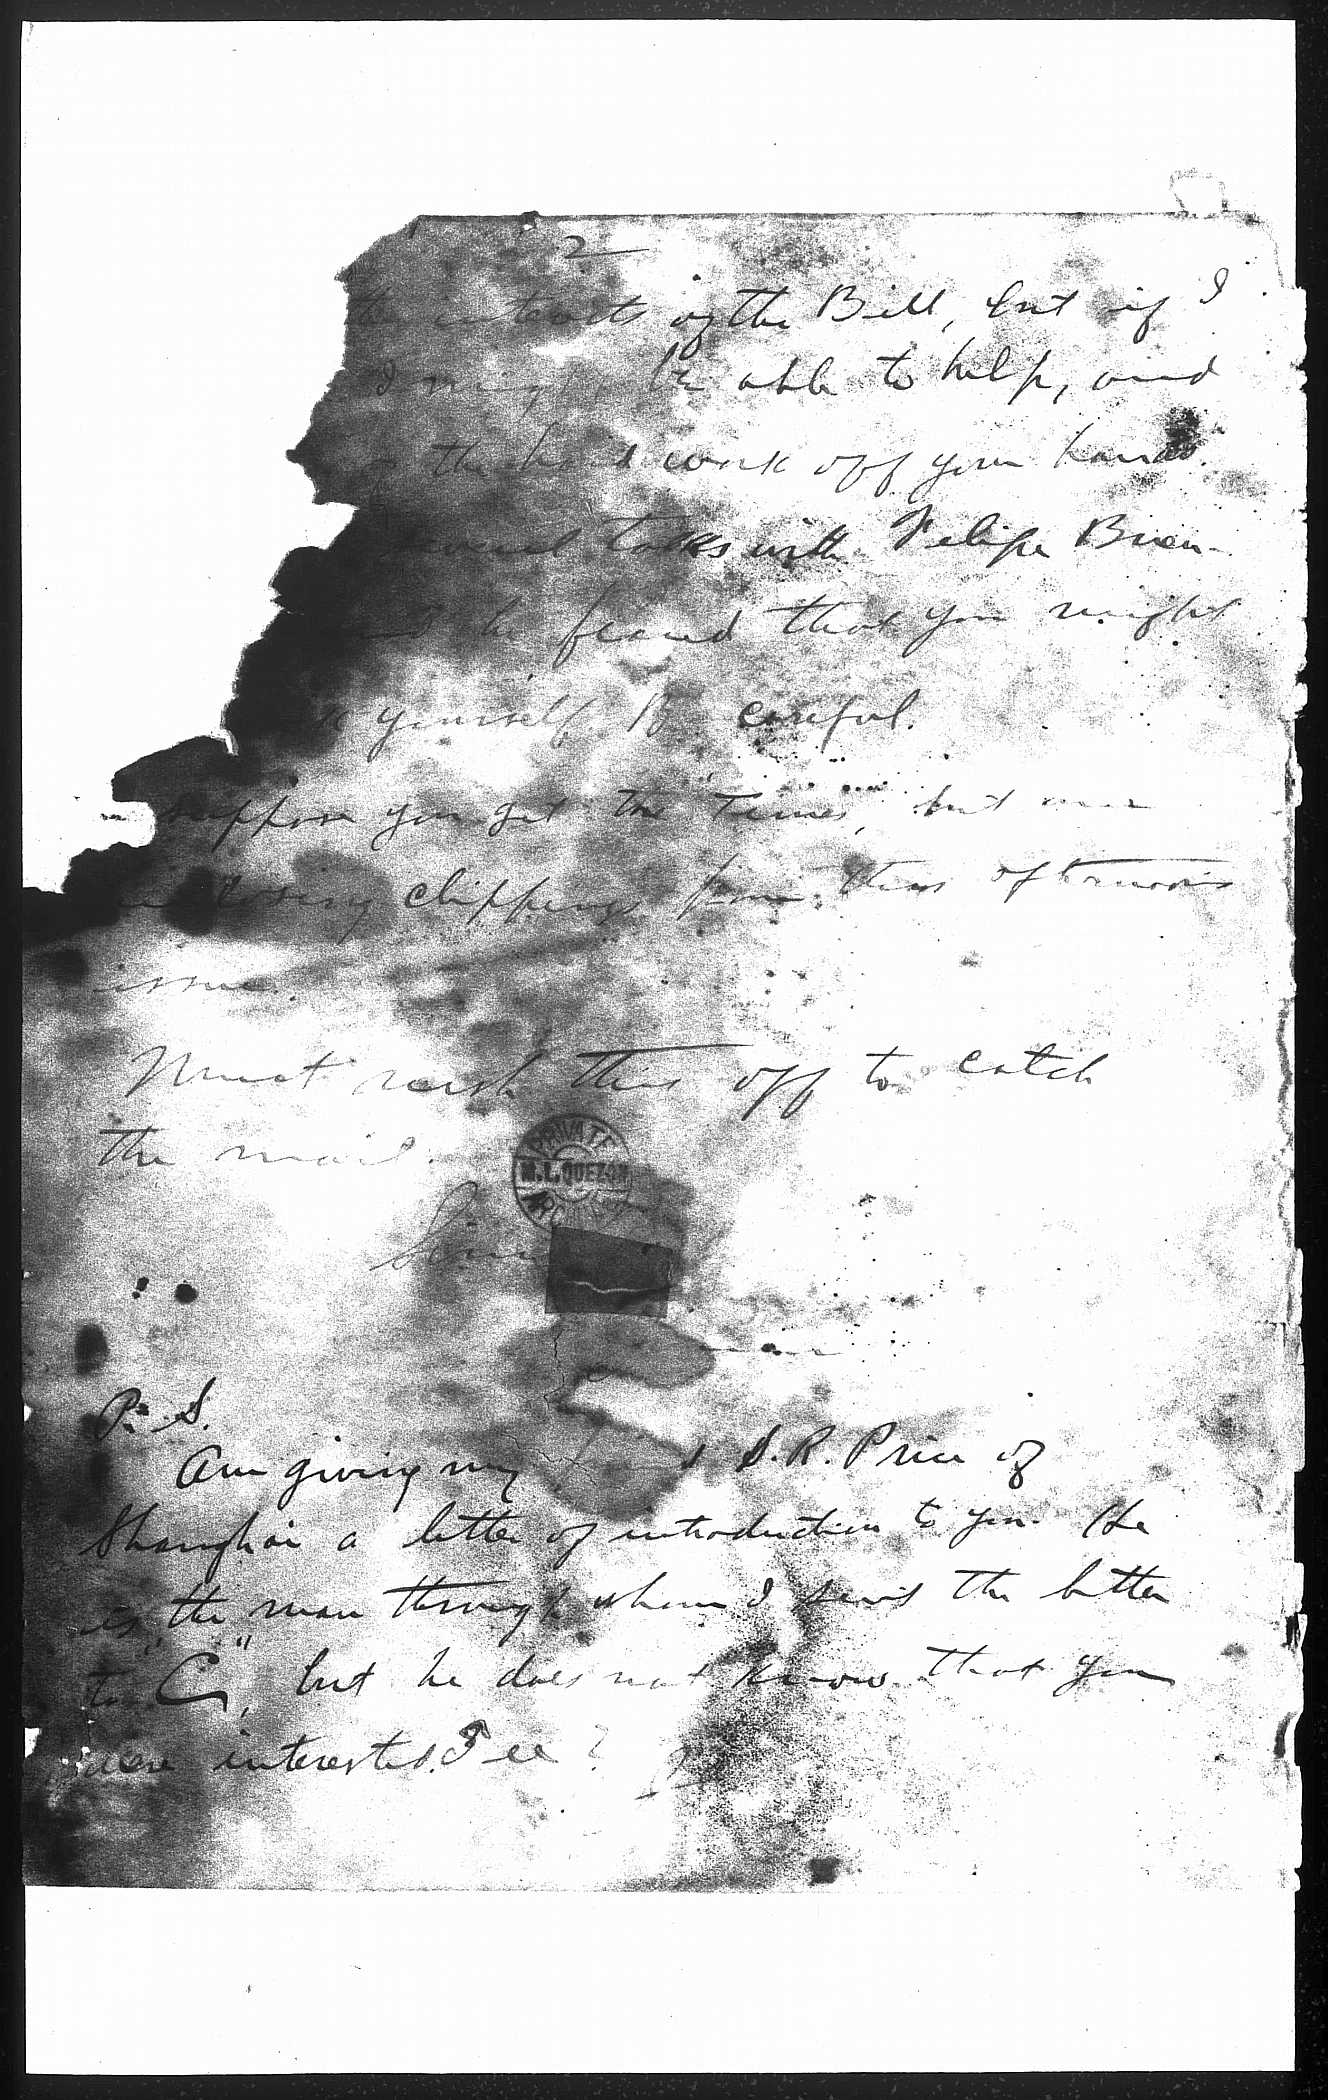 2
the interests of the Bill, but if I
I might be able to help, and
the hard work off your hands.
several talks with Felipe Buen-
and he feared that you might
yourself. Be careful.
suppose you get the "Times", but am
inclosing clippings from this afternoon's
issue.
Must rush this off to catch
the mail.
PRIVATE
M.L. QUEZON
P.S.
Am giving my S.R. Price of
Shanghai a letter of introduction to you. He
is the man through whom I send the letter
to "C", but he does not know that you
are interested. See?